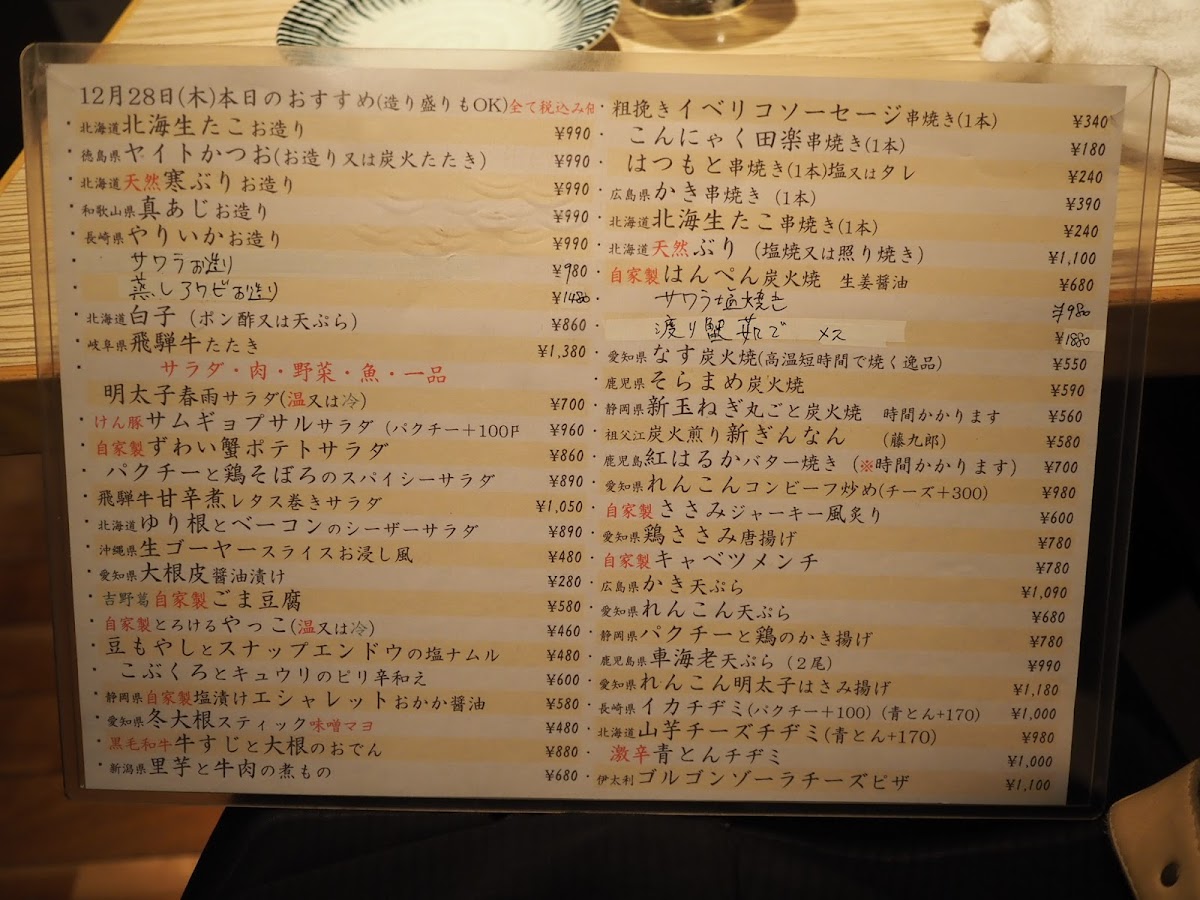 12月28日(木)本日のおすすめ(造り盛りもOK)全て税込み
・北海道北海生たこお造り ¥990
・徳島県ヤイトかつお(お造り又は炭火たたき) ¥990
・北海道天然寒ぶりお造り ¥990
・和歌山県真あじお造り ¥990
・長崎県やりいかお造り ¥990
・サワラお造り ¥980
・蒸しアワビお造り ¥1480
・北海道白子(ポン酢又は天ぷら) ¥860
・岐阜県飛騨牛たたき ¥1,380
・サラダ・肉・野菜・魚・一品
明太子春雨サラダ(温又は冷) ¥700
・けん豚サムギョプサルサラダ(パクチー＋100F ¥960
・自家製ずわい蟹ポテトサラダ ¥860
・パクチーと鶏そぼろのスパイシーサラダ ¥890
・飛騨牛甘辛煮レタス巻きサラダ ¥1,050
・北海道ゆり根とベーコンのシーザーサラダ ¥890
・沖縄県生ゴーヤースライスお浸し風 ¥480
・愛知県大根皮醤油漬け ¥280
・吉野葛自家製ごま豆腐 ¥580
・自家製とろけるやっこ(温又は冷) ¥460
・豆もやしとスナップエンドウの塩ナムル ¥480
・こぶくろとキュウリのピリ辛和え ¥600
・静岡県自家製塩漬けエシャレットおかか醤油 ¥580
・愛知県冬大根スティック味噌マヨ ¥480
・黒毛和牛牛すじと大根のおでん ¥880
・新潟県里芋と牛肉の煮もの ¥680
・粗挽きイベリコソーセージ串焼き(1本) ¥340
・こんにゃく田楽串焼き(1本) ¥180
・はつもと串焼き(1本)塩又はタレ ¥240
・広島県かき串焼き(1本) ¥390
・北海道北海生たこ串焼き(1本) ¥240
・北海道天然ぶり(塩焼又は照り焼き) ¥1,100
・自家製はんぺん炭火焼 生姜醤油 ¥680
・サワラ塩焼き ¥980
・渡り蟹茹で メス ¥1880
・愛知県なす炭火焼(高温短時間で焼く逸品) ¥550
・鹿児県そらまめ炭火焼 ¥590
・静岡県新玉ねぎ丸ごと炭火焼 時間かかります ¥560
・祖父江炭火煎り新ぎんなん (藤九郎) ¥580
・鹿児島紅はるかバター焼き(※時間かかります) ¥700
・愛知県れんこんコンビーフ炒め(チーズ＋300) ¥980
・自家製ささみジャーキー風炙り ¥600
・愛知県鶏ささみ唐揚げ ¥780
・自家製キャベツメンチ ¥780
・広島県かき天ぷら ¥1,090
・愛知県れんこん天ぷら ¥680
・静岡県パクチーと鶏のかき揚げ ¥780
・鹿児島県車海老天ぷら(2尾) ¥990
・愛知県れんこん明太子はさみ揚げ ¥1,180
・長崎県イカチヂミ(パクチー＋100)(青とん+170) ¥1,000
・北海道山芋チーズチヂミ(青とん+170) ¥980
・激辛青とんチヂミ ¥1,000
・伊太利ゴルゴンゾーラチーズピザ ¥1,100